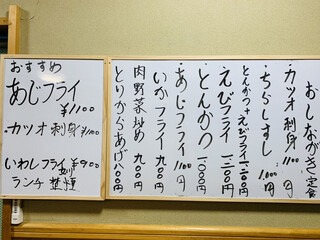 おすすめ
あじフライ
¥1100
カツオ刺身 ¥1100
いわしフライ ¥900
ランチ
おしながき 定食
・カツオ刺身 1100円
・ちらしずし 1,000円
とんかつ+えびフライ 1200円
・えびフライ 1200円
・とんかつ 1000円
・あじフライ 1100円
・いかフライ 900円
肉野菜炒め 900円
とりからあげ 800円